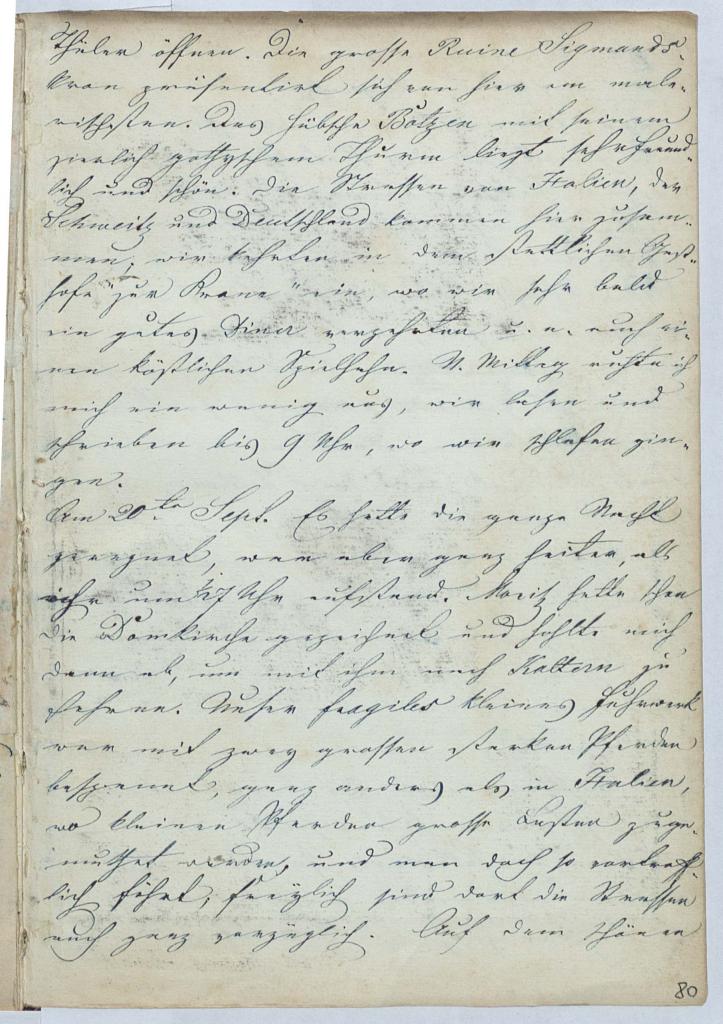 Thäler öffnen. Die grosse Ruine Sigmunds-
kron präsentirt sich von hier am male-
rischsten. Das hübsche Botzen mit seinem
zierlich gothyschem Thurm liegt sehr freund-
lich und schön. Die Strassen von Italien, der
Schweitz und Deutschland kommen hier zusam-
men; wir kehrten in dem stattlichen Gast-
hofe "zur Krone" ein, wo wir sehr bald
ein gutes Diner verzehrten u. a. auch ei-
nen köstlichen Spielhahn. N. Mittag ruhte ich
mich ein wenig aus, wir lasen und
schrieben bis 9 Uhr, wo wir schlafen gin-
gen.
Am 20ten Sept. Es hatte die ganze Nacht
geregnet, war aber ganz heiter, als
ich um 1/27 Uhr aufstand. Moritz hatte schon
die Domkirche gezeichnet und hohlte mich
dann ab, um mit ihm nach Kaltern zu
fahren. Unser fragiles kleines Fuhrwerk
war mit zwey grossen starken Pferden
bespannt, ganz anders als in Italien,
wo kleinen Pferden grosse Lasten zuge-
muthet werden, und man doch so vortreff-
lich fährt; freylich sind dort die Strassen
auch ganz vorzüglich. Auf dem schönen
80